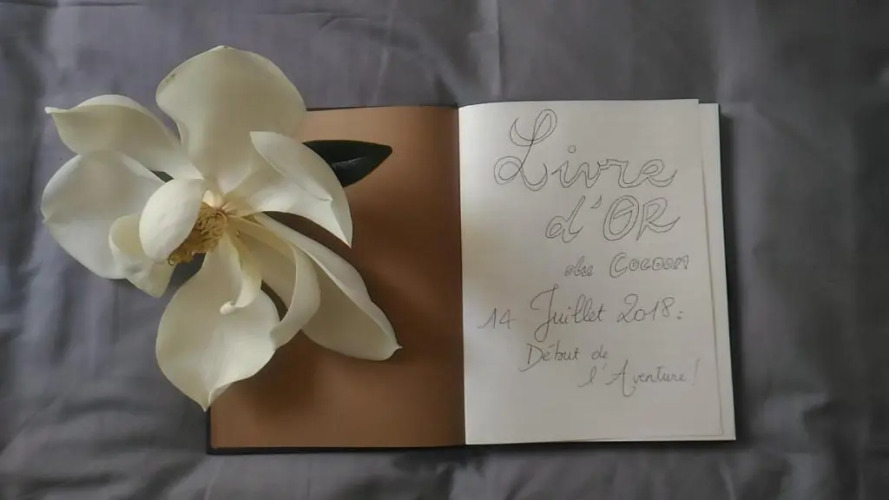 Livre
d'OR
du Cocoon
14 Juillet 2018:
Début de
l'Aventure!